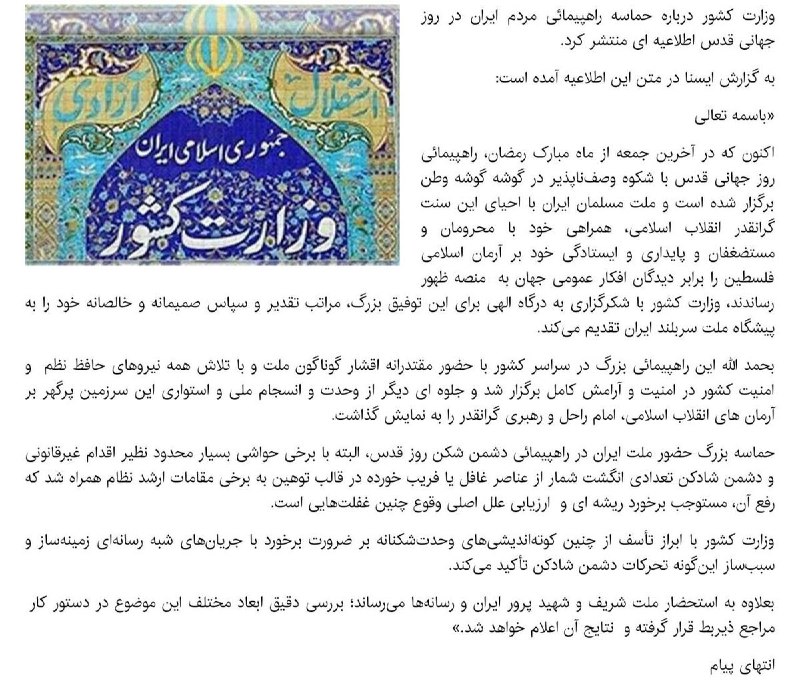 وزارت کشور درباره حماسه راهپیمائی مردم ایران در روز
جهانی قدس اطلاعیه ای منتشر کرد.
به گزارش ایسنا در متن این اطلاعیه آمده است:
«باسمه تعالی
اکنون که در آخرین جمعه از ماه مبارک رمضان، راهپیمائی
روز جهانی قدس با شکوه وصف‌ناپذیر در گوشه گوشه وطن
برگزار شده است و ملت مسلمان ایران با احیای این سنت
گرانقدر انقلاب اسلامی، همراهی خود با محرومان و
مستضغفان و پایداری و ایستادگی خود بر آرمان اسلامی
فلسطین را برابر دیدگان افکار عمومی جهان به منصه ظهور
رساندند، وزارت کشور با شکرگزاری به درگاه الهی برای این توفیق بزرگ، مراتب تقدیر و سپاس صمیمانه و خالصانه خود را به
پیشگاه ملت سربلند ایران تقدیم می‌کند.
بحمد الله این راهپیمائی بزرگ در سراسر کشور با حضور مقتدرانه اقشار گوناگون ملت و با تلاش همه نیروهای حافظ نظم و
امنیت کشور در امنیت و آرامش کامل برگزار شد و جلوه ای دیگر از وحدت و انسجام ملی و استواری این سرزمین پرگهر بر
آرمان های انقلاب اسلامی، امام راحل و رهبری گرانقدر را به نمایش گذاشت.
حماسه بزرگ حضور ملت ایران در راهپیمائی دشمن شکن روز قدس، البته با برخی حواشی بسیار محدود نظیر اقدام غیرقانونی
و دشمن شادکن تعدادی انگشت شمار از عناصر غافل یا فریب خورده در قالب توهین به برخی مقامات ارشد نظام همراه شد که
رفع آن، مستوجب برخورد ریشه ای و ارزیابی علل اصلی وقوع چنین غفلت‌هایی است.
وزارت کشور با ابراز تأسف از چنین کوته‌اندیشی‌های وحدت‌شکنانه بر ضرورت برخورد با جریان‌های شبه رسانه‌ای زمینه‌ساز و
سبب‌ساز این‌گونه تحرکات دشمن شادکن تأکید می‌کند.
بعلاوه به استحضار ملت شریف و شهید پرور ایران و رسانه‌ها می‌رساند؛ بررسی دقیق ابعاد مختلف این موضوع در دستور کار
مراجع ذیربط قرار گرفته و نتایج آن اعلام خواهد شد.»
انتهای پیام
استقلال آزادی
جمهوری اسلامی ایران
وزارت کشور